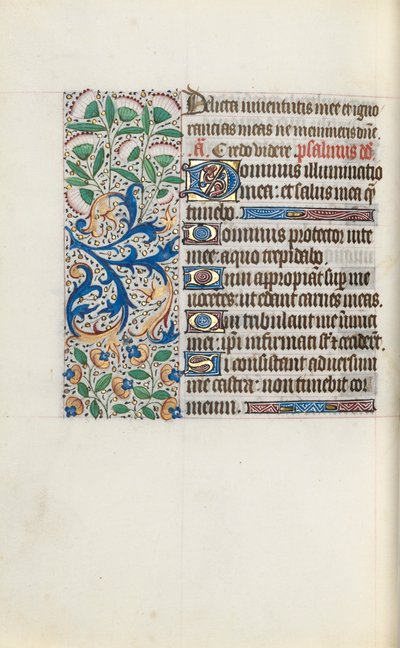 Delicta iuuentutis mee et igno
rancias meas ne memineris dñe.
A. Credo videre psalmus dd
Dominus illuminatio
mea: et salus mea q̃
timebo.
Dominus protector vite
mee: a quo trepidabo
Dum appropiãt sup̃ me
nocētes: ut edant carnes meas.
Qui tribulant me inimici
mei: ip̃i infirmati sũt et cecidert̃
Si consistant aduersum
me castra: non timebit cor
meum.